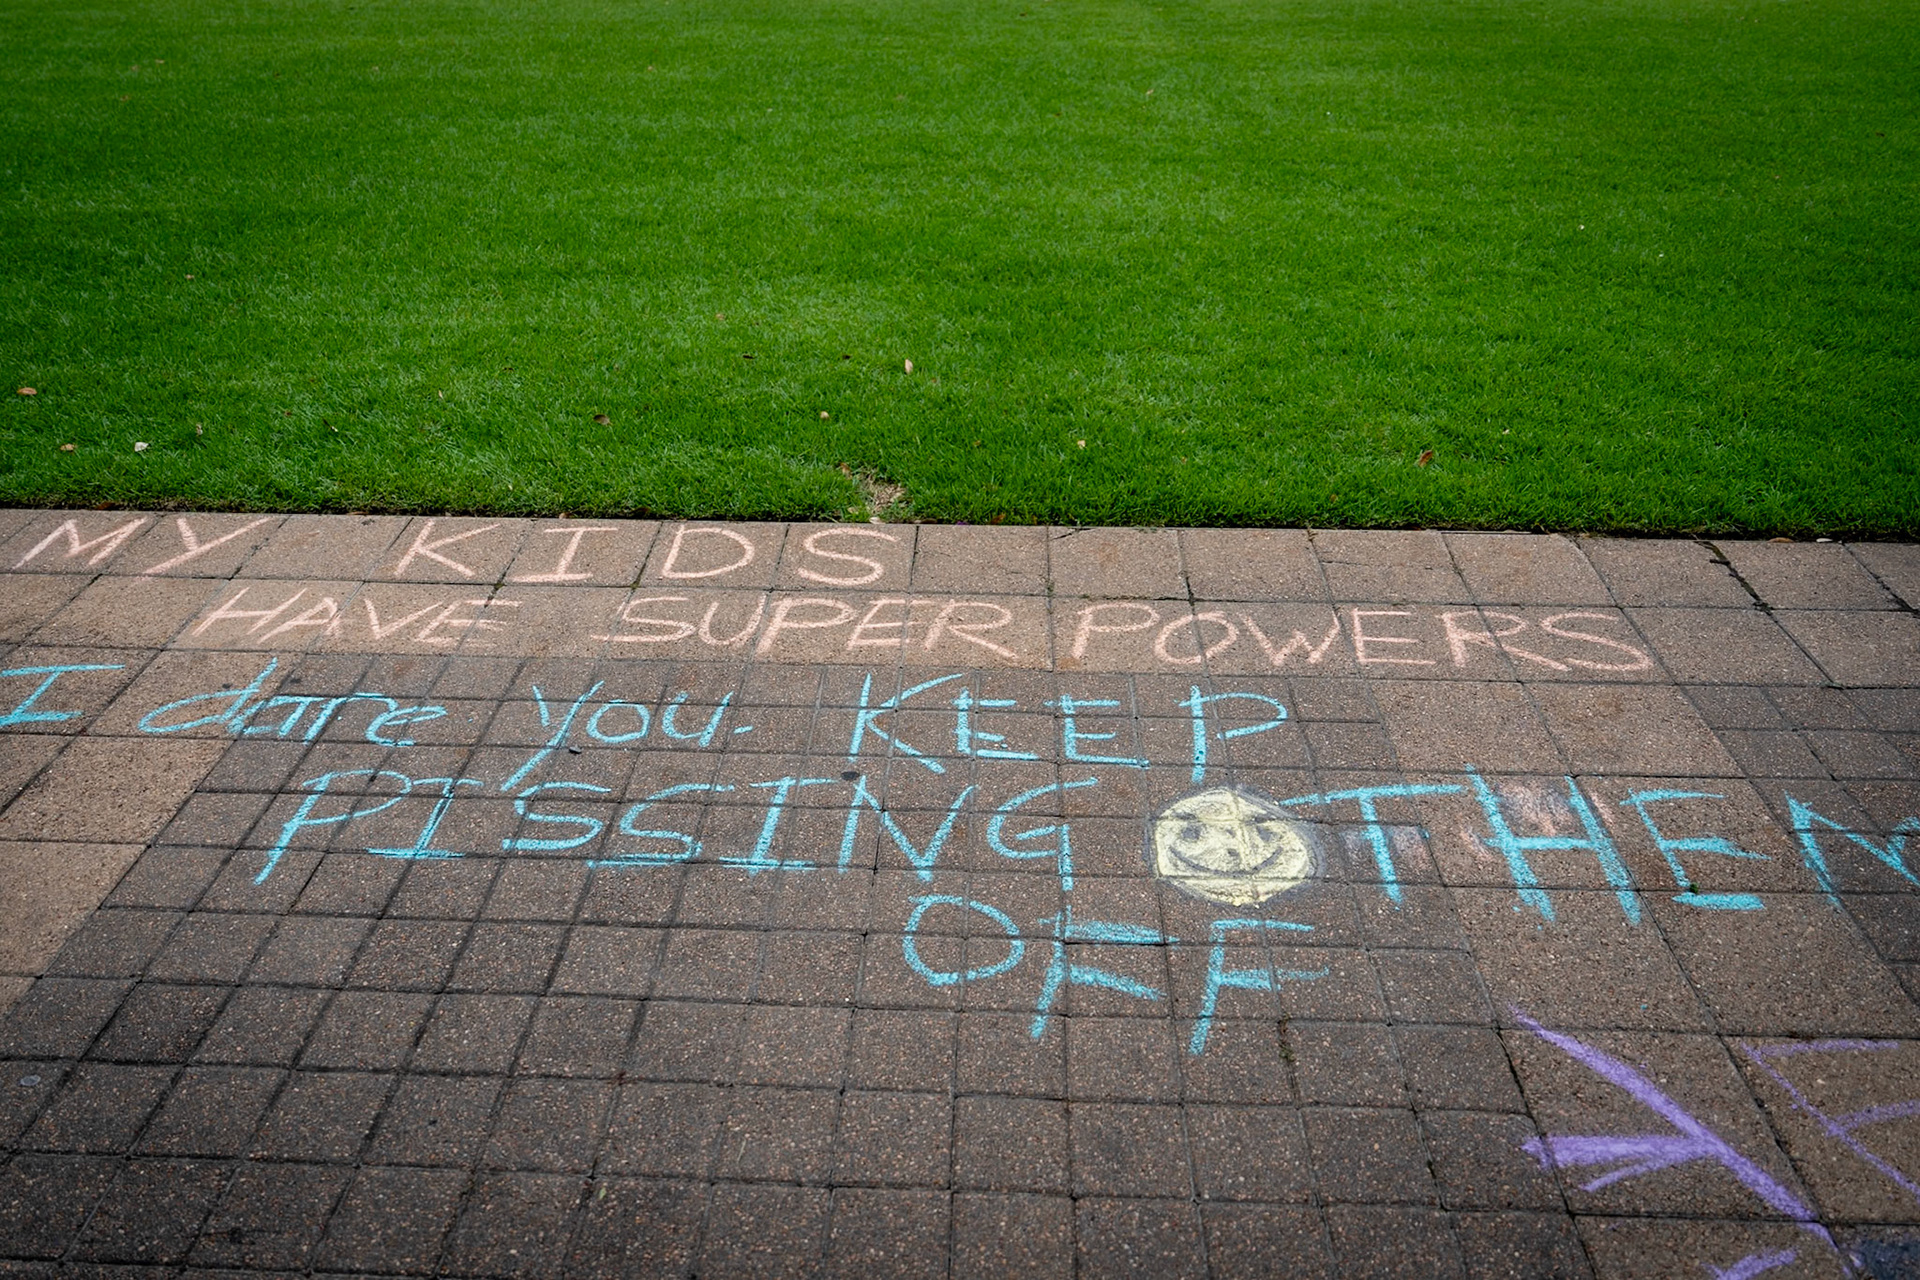 MY KIDS
HAVE SUPER POWERS
I dare you. KEEP
PISSING THEM
OFF